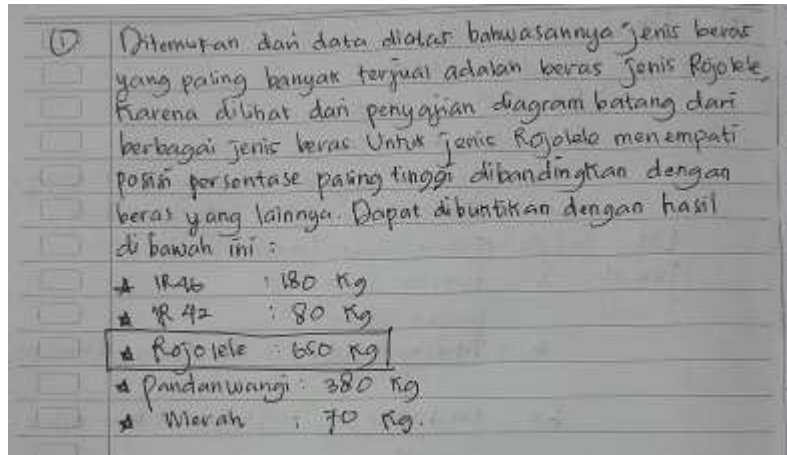 ① Ditemukan dari data diatas bahwasannya jenis beras
yang paling banyak terjual adalah beras jenis Rojolele,
Karena dilihat dari penyajian diagram batang dari
berbagai jenis beras. Untuk jenis Rojolele menempati
posisi persentase paling tinggi dibandingkan dengan
beras yang lainnya. Dapat dibuktikan dengan hasil
di bawah ini :
★ IR46 : 180 Kg
★ IR 42 : 80 Kg
★ Rojolele : 650 Kg
★ Pandanwangi : 380 Kg
★ Merah : 70 Kg.